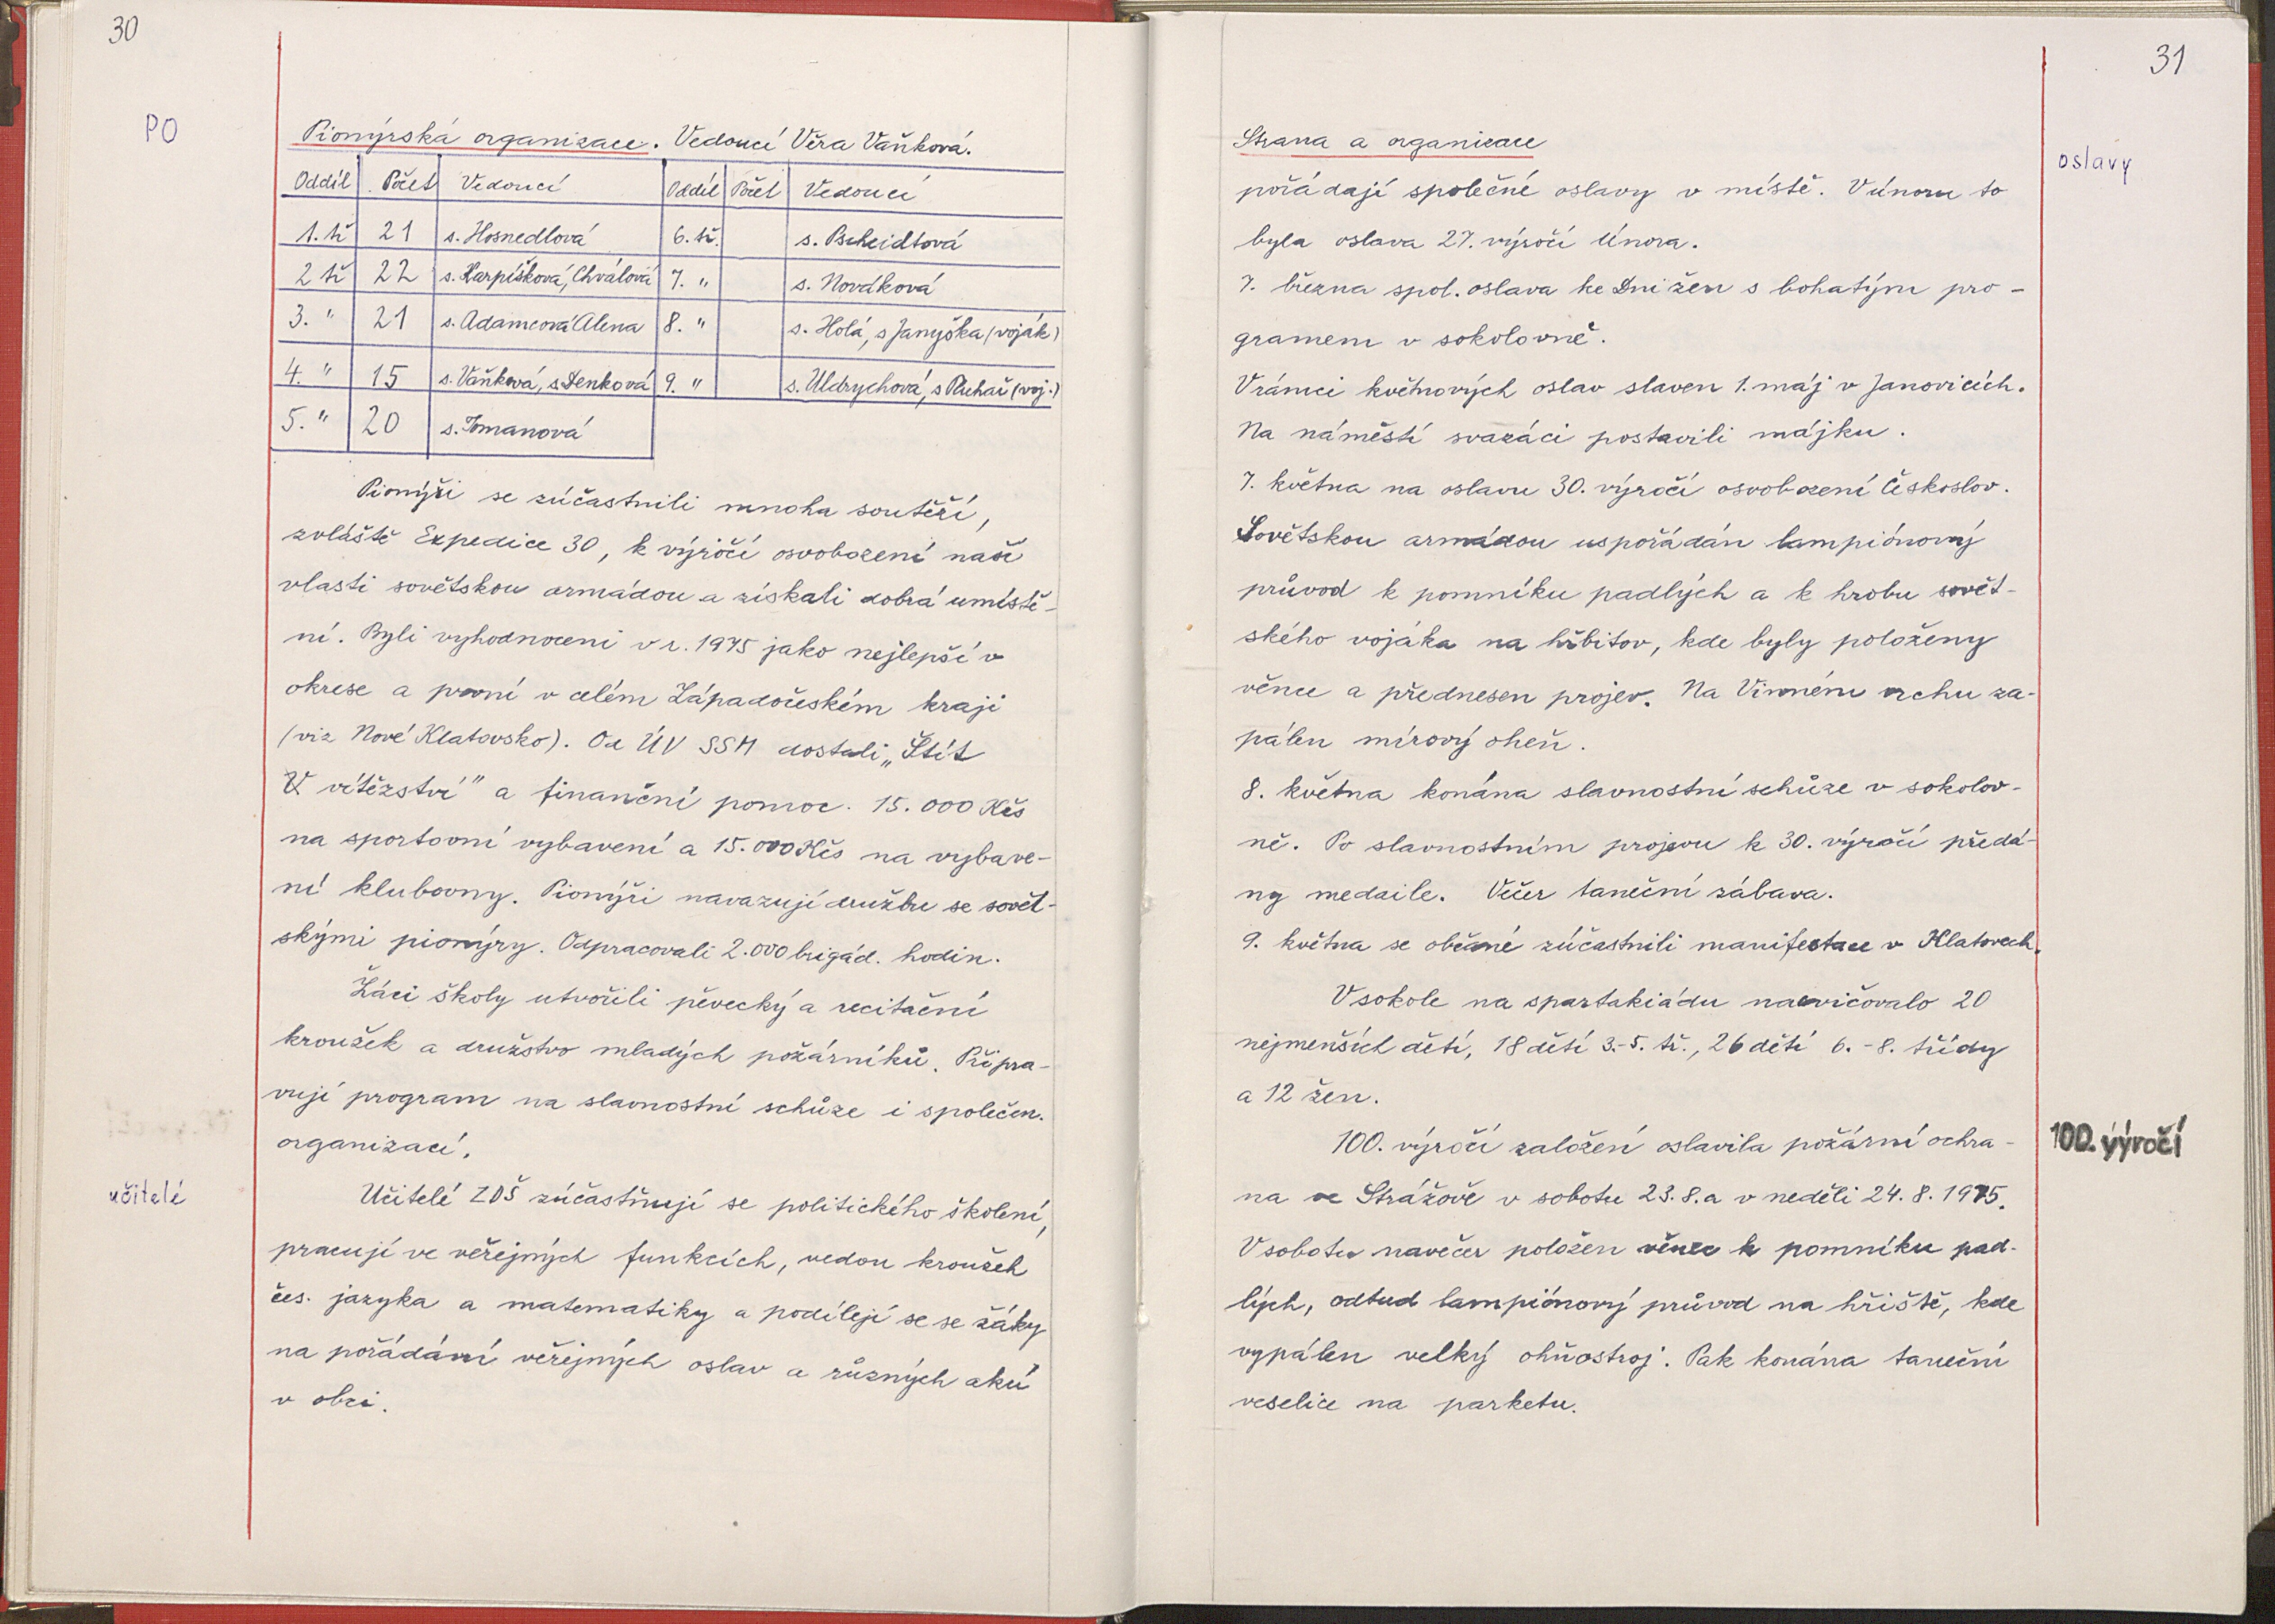 30
PO
Pionýrská organizace. Vedoucí Věra Vaňková.
Oddíl Počet Vedoucí Oddíl Počet Vedoucí
1. tř 21 s. Hosnedlová 6. tř. s. Pscheidtová
2 tř 22 s. Karpíšková, Chválová 7. " s. Nováková
3. " 21 s. Adamcová Alena 8. " s. Holá, s Janyška (voják)
4. " 15 s. Vaňková, s Denková 9. " s. Uldrychová, s Pluhař (voj.)
5. " 20 s. Tomanová
Pionýři se zúčastnili mnoha soutěží,
zvláště Expedice 30, k výročí osvobození naší
vlasti sovětskou armádou a získali dobrá umístě-
ní. Byli vyhodnoceni v r. 1975 jako nejlepší v
okrese a první v celém Západočeském kraji
(viz Nové Klatovsko). Od ÚV SSM dostali „Štít
V vítězství" a finanční pomoc. 15.000 Kčs
na sportovní vybavení a 15.000 Kčs na vybave-
ní klubovny. Pionýři navazují družbu se sovět-
skými pionýry. Odpracovali 2.000 brigád. hodin.
Žáci školy utvořili pěvecký a recitační
kroužek a družstvo mladých požárníků. Připra-
vují program na slavnostní schůze i společen.
organizací.
učitelé
Učitelé ZDŠ zúčastňují se politického školení,
pracují ve veřejných funkcích, vedou kroužek
čes. jazyka a matematiky a podílejí se se žáky
na pořádání veřejných oslav a různých akcí
v obci.
31
oslavy
Strana a organizace
pořádají společné oslavy v místě. V únoru to
byla oslava 27. výročí Února.
7. března spol. oslava ke Dni žen s bohatým pro-
gramem v sokolovně.
V rámci květnových oslav slaven 1. máj v Janovicích.
Na náměstí svazáci postavili májku.
7. května na oslavu 30. výročí osvobození Českoslov.
Sovětskou armádou uspořádán lampiónový
průvod k pomníku padlých a k hrobu sovět-
ského vojáka na hřbitov, kde byly položeny
věnce a přednesen projev. Na Vinném vrchu za-
pálen mírový oheň.
8. května konána slavnostní schůze v sokolov-
ně. Po slavnostním projevu k 30. výročí předá-
ny medaile. Večer taneční zábava.
9. května se občané zúčastnili manifestace v Klatovech.
V sokole na spartakiádu nacvičovalo 20
nejmenších dětí, 18 dětí 3.-5. tř., 26 dětí 6.-8. třídy
a 12 žen.
100. výročí
100. výročí založení oslavila požární ochra-
na ve Strážově v sobotu 23.8. a v neděli 24.8.1975.
V sobotu navečer položen věnec k pomníku pad-
lých, odtud lampiónový průvod na hřiště, kde
vypálen velký ohňostroj. Pak konána taneční
veselice na parketu.